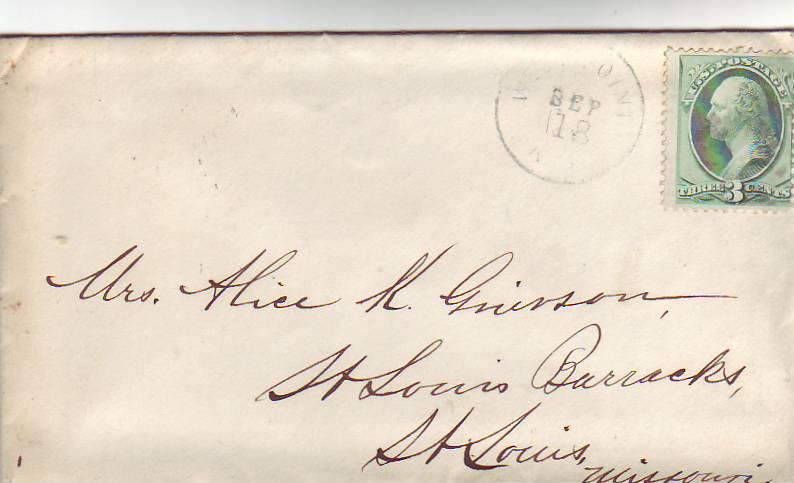 U.S. POSTAGE
WEST POINT
SEP
18
N Y
THREE 3 CENTS
Mrs. Alice K. Grierson,
St Louis Barracks,
St Louis,
Missouri.